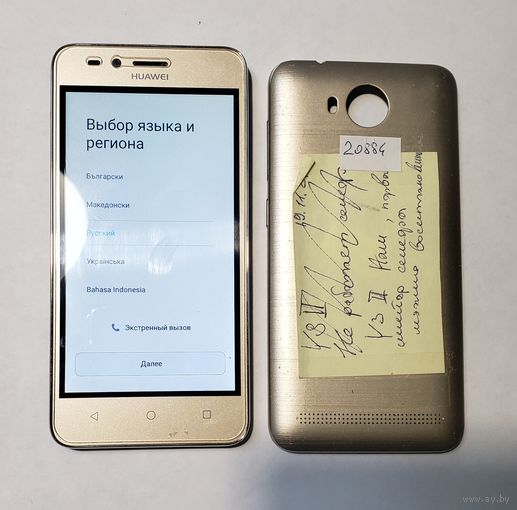 HUAWEI
Выбор языка и
региона
Български
Македонски
Русский
Українська
Bahasa Indonesia
Экстренный вызов
Далее
20884
19.11.
Y3 II
Не работает сенсор
Y3 II
можно
www.ay.by